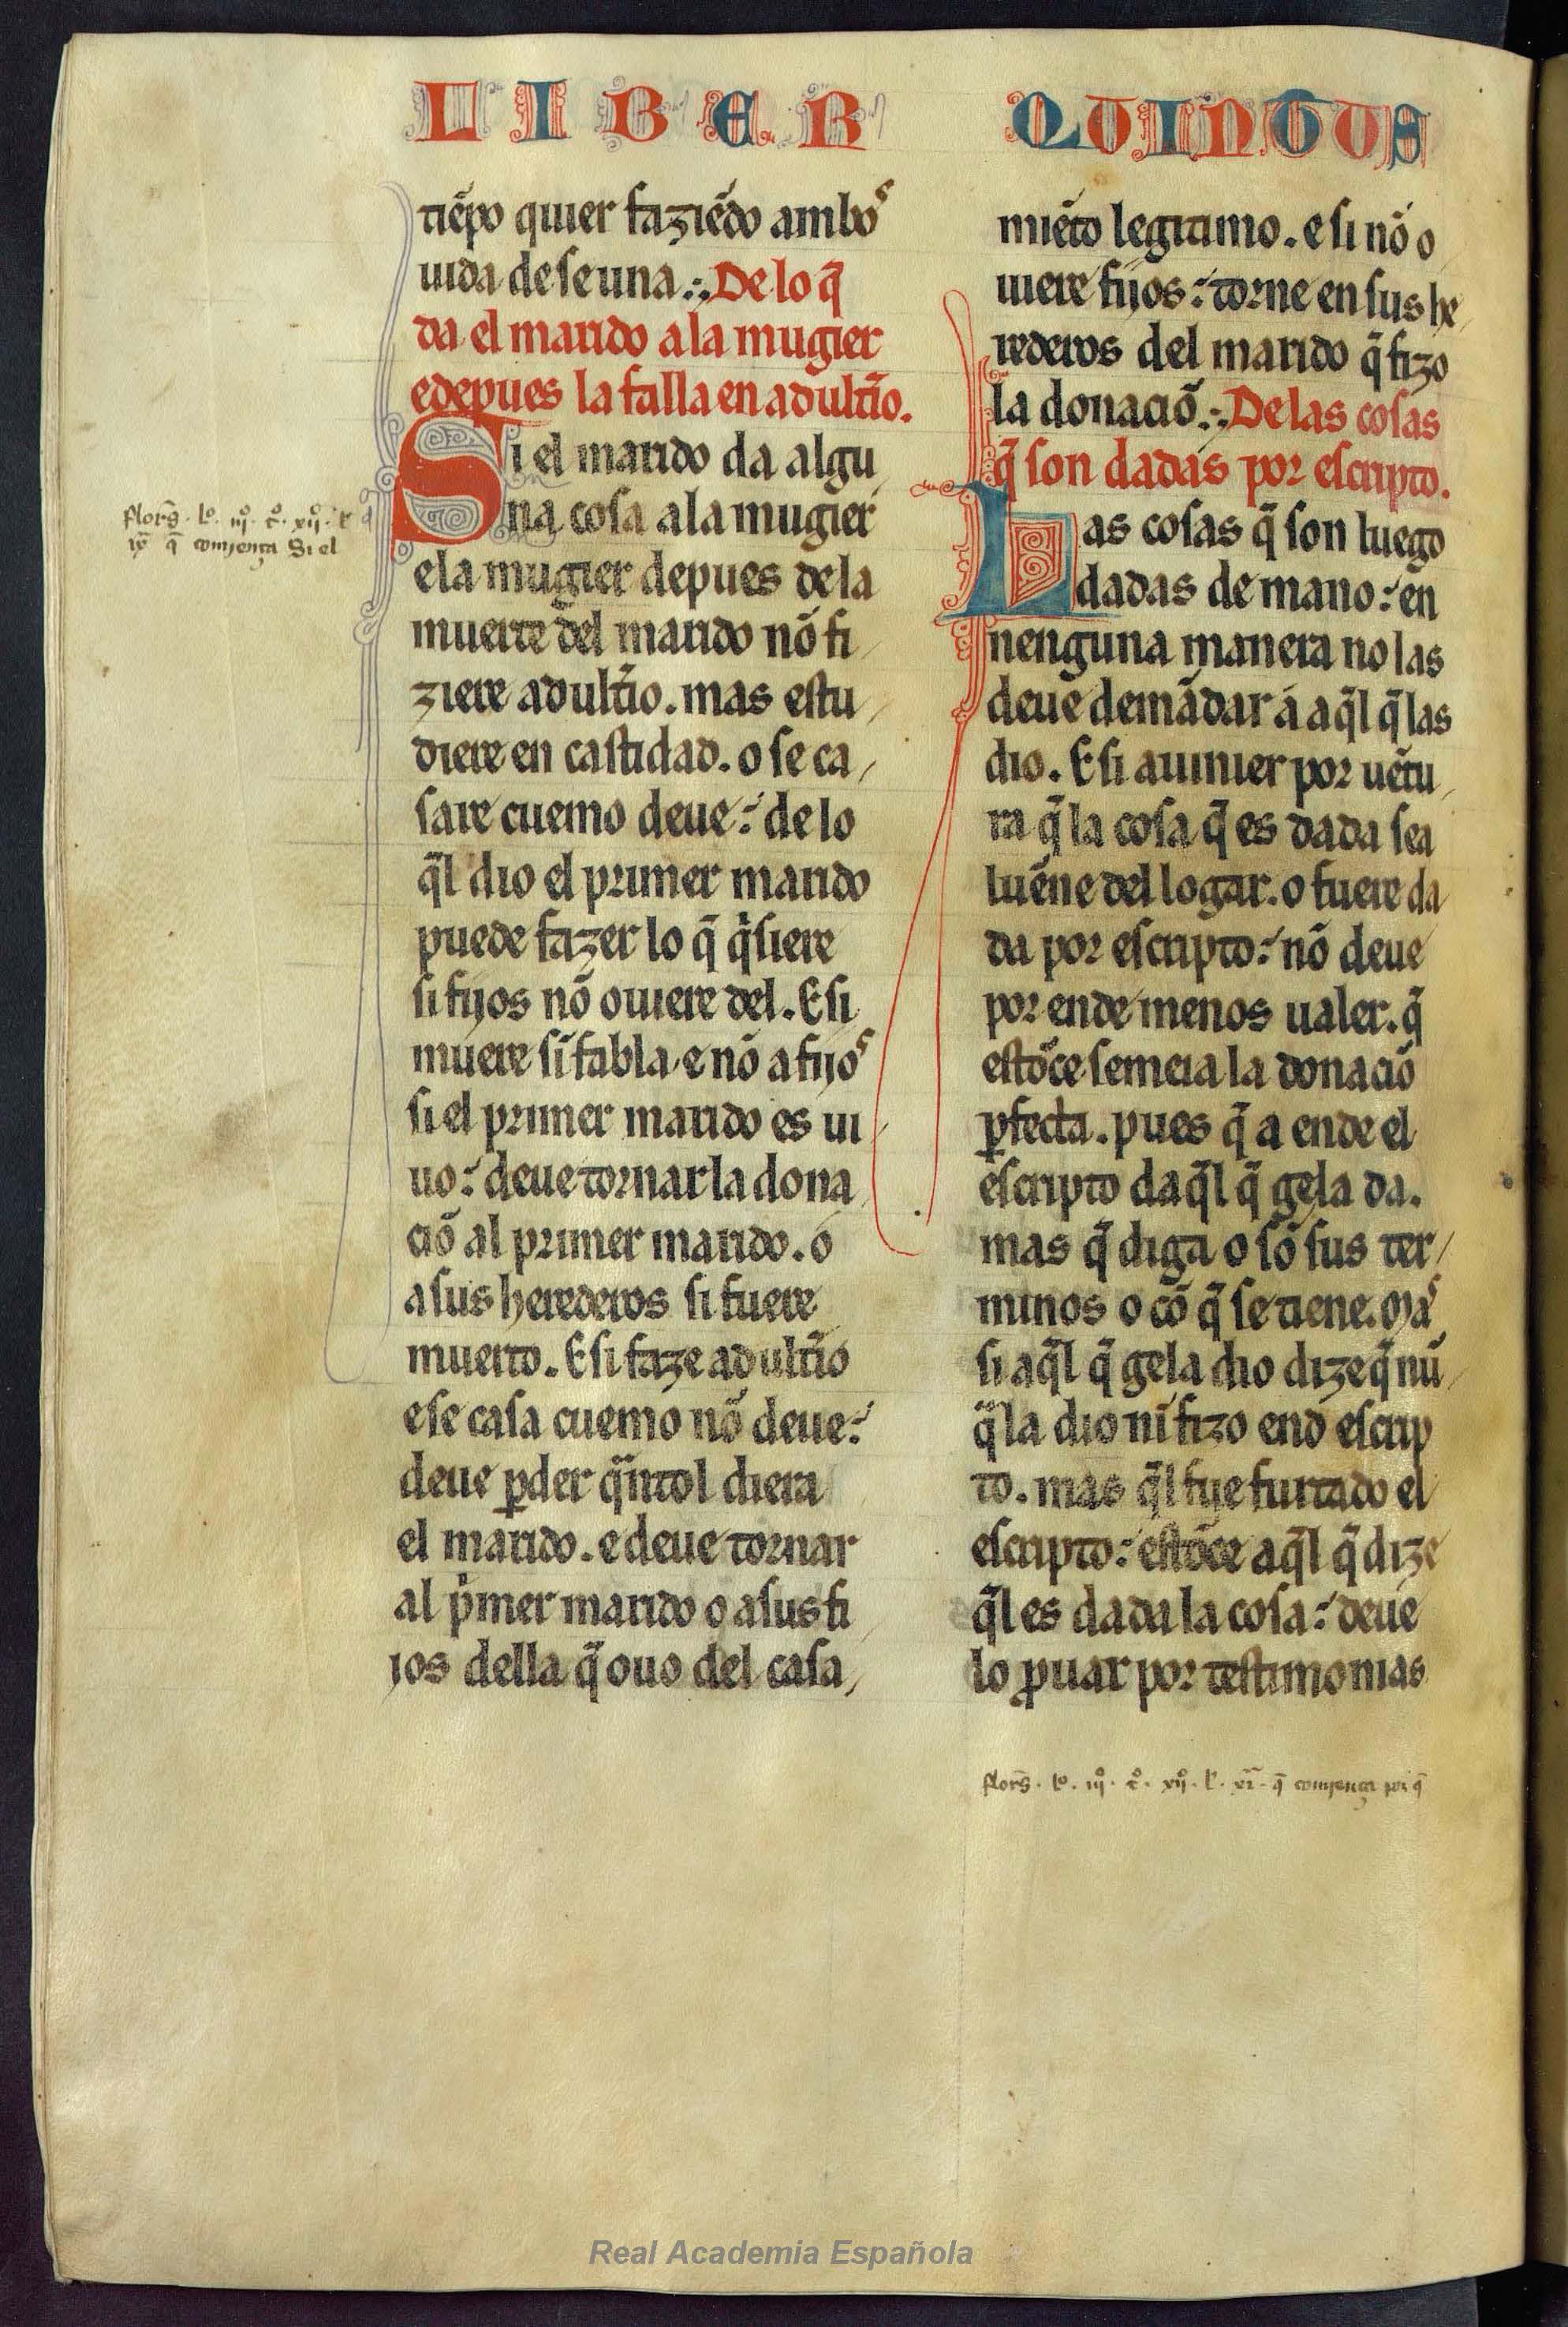 LIBER QUINTUS
tiẽpo quier faziẽdo ambos
uida de se una.:. De lo q̃
da el marido a la mugier
e depues la falla en adult̃io.
Si el marido da algu
na cosa a la mugier
e la mugier depues de la
muerte del marido nõ fi
ziere adult̃io. mas estu
diere en castidad. o se ca
sare cuemo deue: de lo
q̃l dio el primer marido
puede fazer lo q̃ q̃siere
si fijos nõ ouiere del. E si
muere sĩ fabla e nõ a fijos
si el primer marido es ui
uo: deue tornar la dona
ciõ al primer marido. o
a sus herederos si fuere
muerto. E si faze adult̃io
e se casa cuemo nõ deue:
deue ꝑder q̃ntol diera
el marido. e deue tornar
al p̃mer marido o a sus fi
ios della q̃ ouo del casa
miẽto legitimo. e si nõ o
uiere fijos: torne en sus he
rederos del marido q̃ fizo
la donaciõ.:. De las cosas
q̃ son dadas por escripto.
Las cosas q̃ son luego
dadas de mano: en
nenguna manera no las
deue demãdar a aq̃l q̃ las
dio. E si auinier por uẽtu
ra q̃ la cosa q̃ es dada sea
luẽne del logar. o fuere da
da por escripto: nõ deue
por ende menos ualer. q̃
estõce semeia la donaciõ
ꝑfecta. pues q̃ a ende el
escripto daq̃l q̃ gela da.
mas q̃ diga o sõ sus ter
minos o cõ q̃ se tiene. Mas
si aq̃l q̃ gela dio dize q̃ nũ
q̃ la dio nĩ fizo end escrip
to. mas q̃l fue furtado el
escripto: estõce aq̃l q̃ dize
q̃l es dada la cosa: deue
lo ꝓuar por testimonias
flor̃s. lº. iijº. tº. xijº. l
q̃ comjença Si el
flor̃s. lº. iijº. tº. xijº. l. vi. q̃ comjença por q̃
Real Academia Española